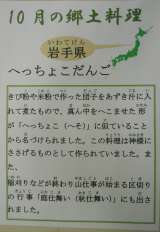 10月の郷土料理
いわてけん
岩手県
へっちょこだんご
きび粉や米粉で作った団子をあずき汁に入
れて煮たもので、真ん中をへこませた形
が「へっちょこ（へそ）」に似ていること
から名づけられました。この料理は神様に
ささげるものとして作られていました。ま
た、
稲刈りなどが終わり山仕事が始まる区切り
の行事「庭仕舞い（秋仕舞い）」にも出さ
れました。